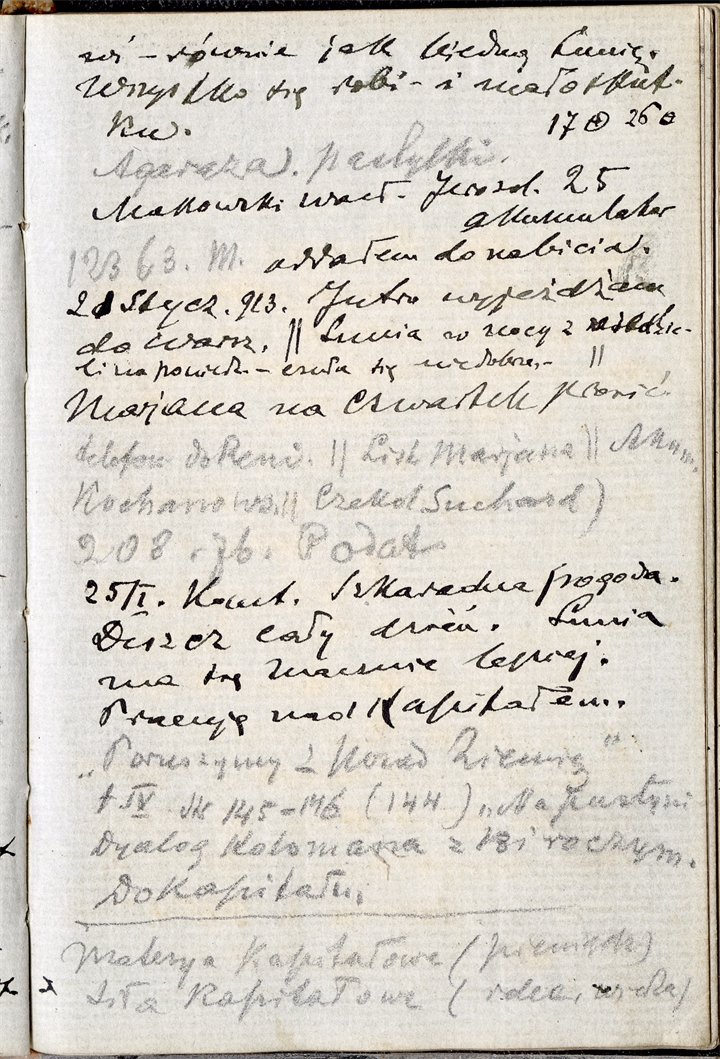 wi – równie jak biedną Lunię.
Wszystko się robi – i mało skut-
ku.
17 26
pastylki.
Makowski wract. Jerozol. 25
akumulator
12363. M. oddałem do nabicia.
21 Stycz. 913. Jutro wyjeżdżam
do Warsz. || Lunia w nocy z niedzie-
li na poniedz – czuła się niedobrze. – ||
Marjana na czwartek prosić
telefon do Reni. || List Marjana || Akum.
Kochanows. || Czekol. Suchard)
208.76. Podat
25/I. Konst. Szkaradna pogoda.
Deszcz cały dzień. Lunia
ma się znacznie lepiej.
Pracuję nad Kapitałem.
„Poruszymy z ponad Ziemię”
t. IV str 145–146 (144) „Na pustyni
Dyalog Kolomana z 18i roczym.
Do Kapitału.
Materya Kapitałowa (pieniądz)
Siła Kapitałowa (idea, wiedza)